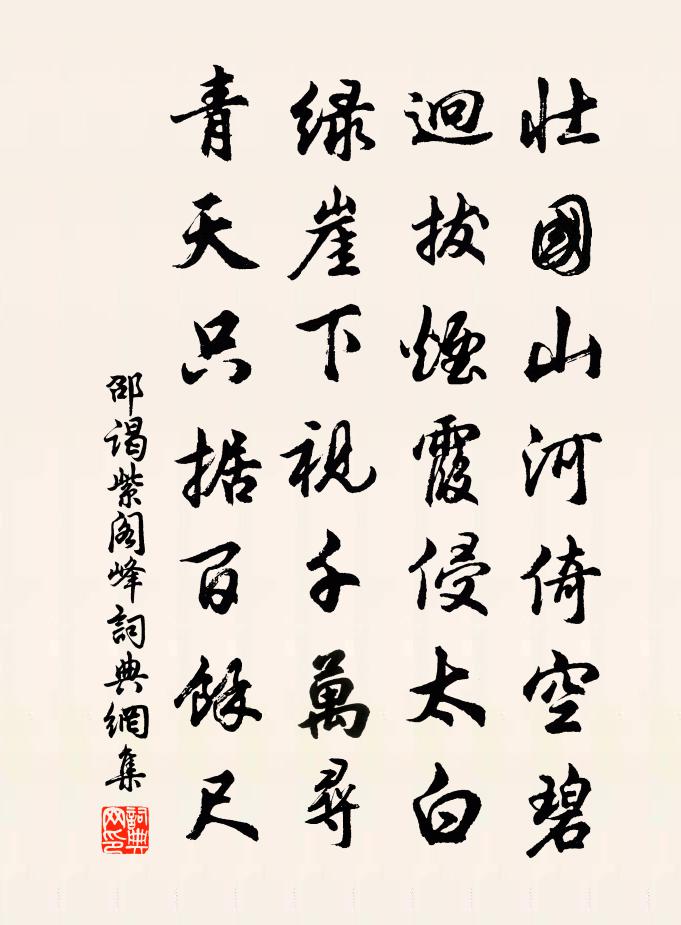 壮國山河倚空碧
迥拔煙霞侵太白
緑崖下視千萬尋
青天只据百餘尺
邵谒紫阁峰詞典網集
詞典
网印